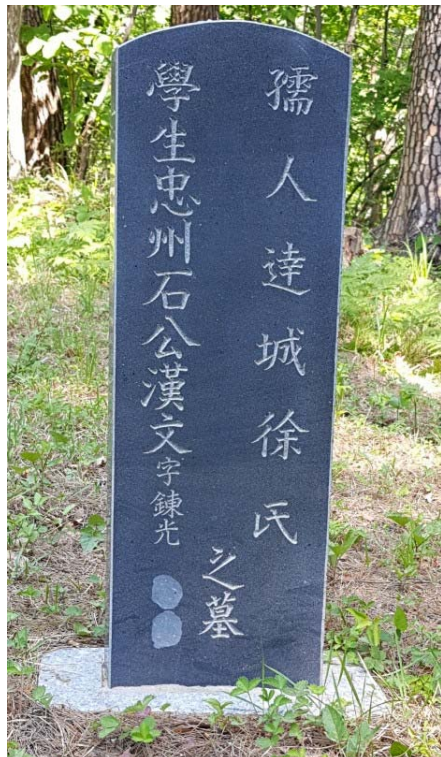 孺人達城徐氏
學生忠州石公漢文字鍊光
之墓